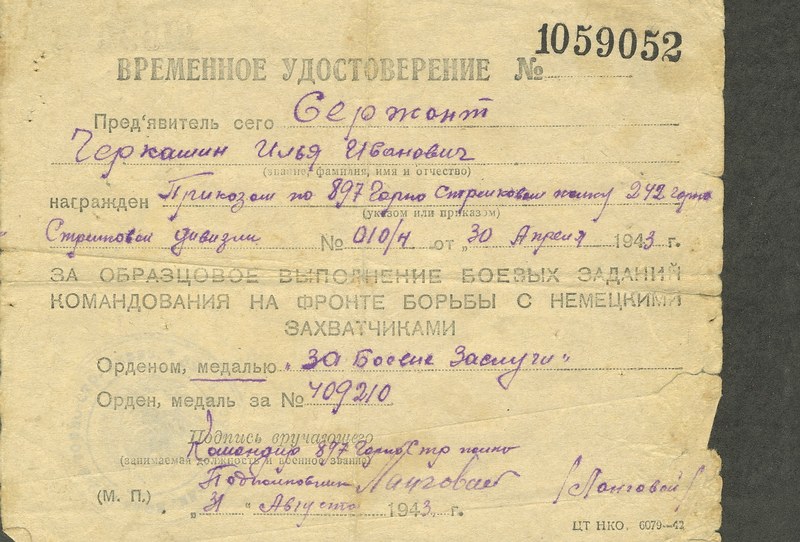 1059052
ВРЕМЕННОЕ УДОСТОВЕРЕНИЕ №
Пред'явитель сего Сержант
Черкашин Илья Иванович
(звание, фамилия, имя и отчество)
награжден Приказом по 897 Горно Стрелковом полку 242 горно
(указом или приказом)
Стрелковой дивизии № 010/н от „30 Апреля 1943 г.
ЗА ОБРАЗЦОВОЕ ВЫПОЛНЕНИЕ БОЕВЫХ ЗАДАНИЙ
КОМАНДОВАНИЯ НА ФРОНТЕ БОРЬБЫ С НЕМЕЦКИМИ
ЗАХВАТЧИКАМИ
Орденом, медалью „За Боевые Заслуги"
Орден, медаль за № 409210
Подпись вручающего
Командир 897 Горно Стр полка
(занимаемая должность и военное звание)
Подполковник /Ланговой/
(М. П.)
„31" Августа 1943 г.
ЦТ НКО. 6079—42